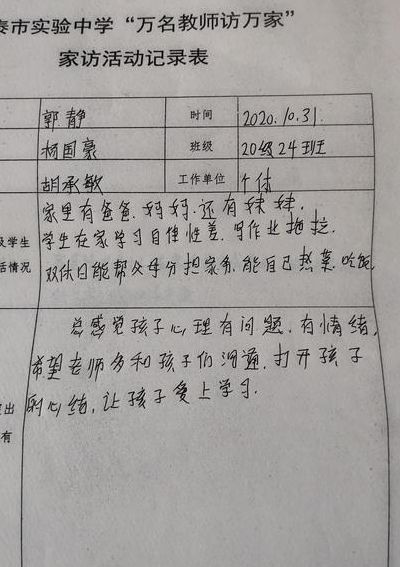 泰市实验中学“万名教师访万家”
家访活动记录表
郭静 时间 2020.10.31
杨国豪 班级 20级24班
胡承敏 工作单位 个体
家里有爸爸.妈妈.还有妹妹.
及学生 学生在家学习自律性差.写作业拖拉.
活情况 双休日能帮父母分担家务.能自己热菜.吃饭
总感觉孩子心理有问题.有情绪.
希望老师多和孩子们沟通.打开孩子
出 的心结.让孩子爱上学习.
有